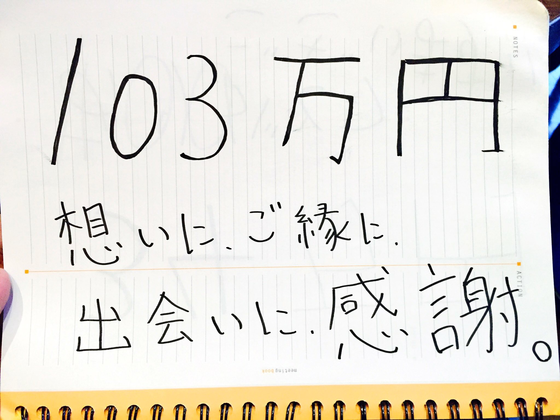 103万円
想いに、ご縁に、
出会いに、感謝。
NOTES
ACTION
Meeting Book